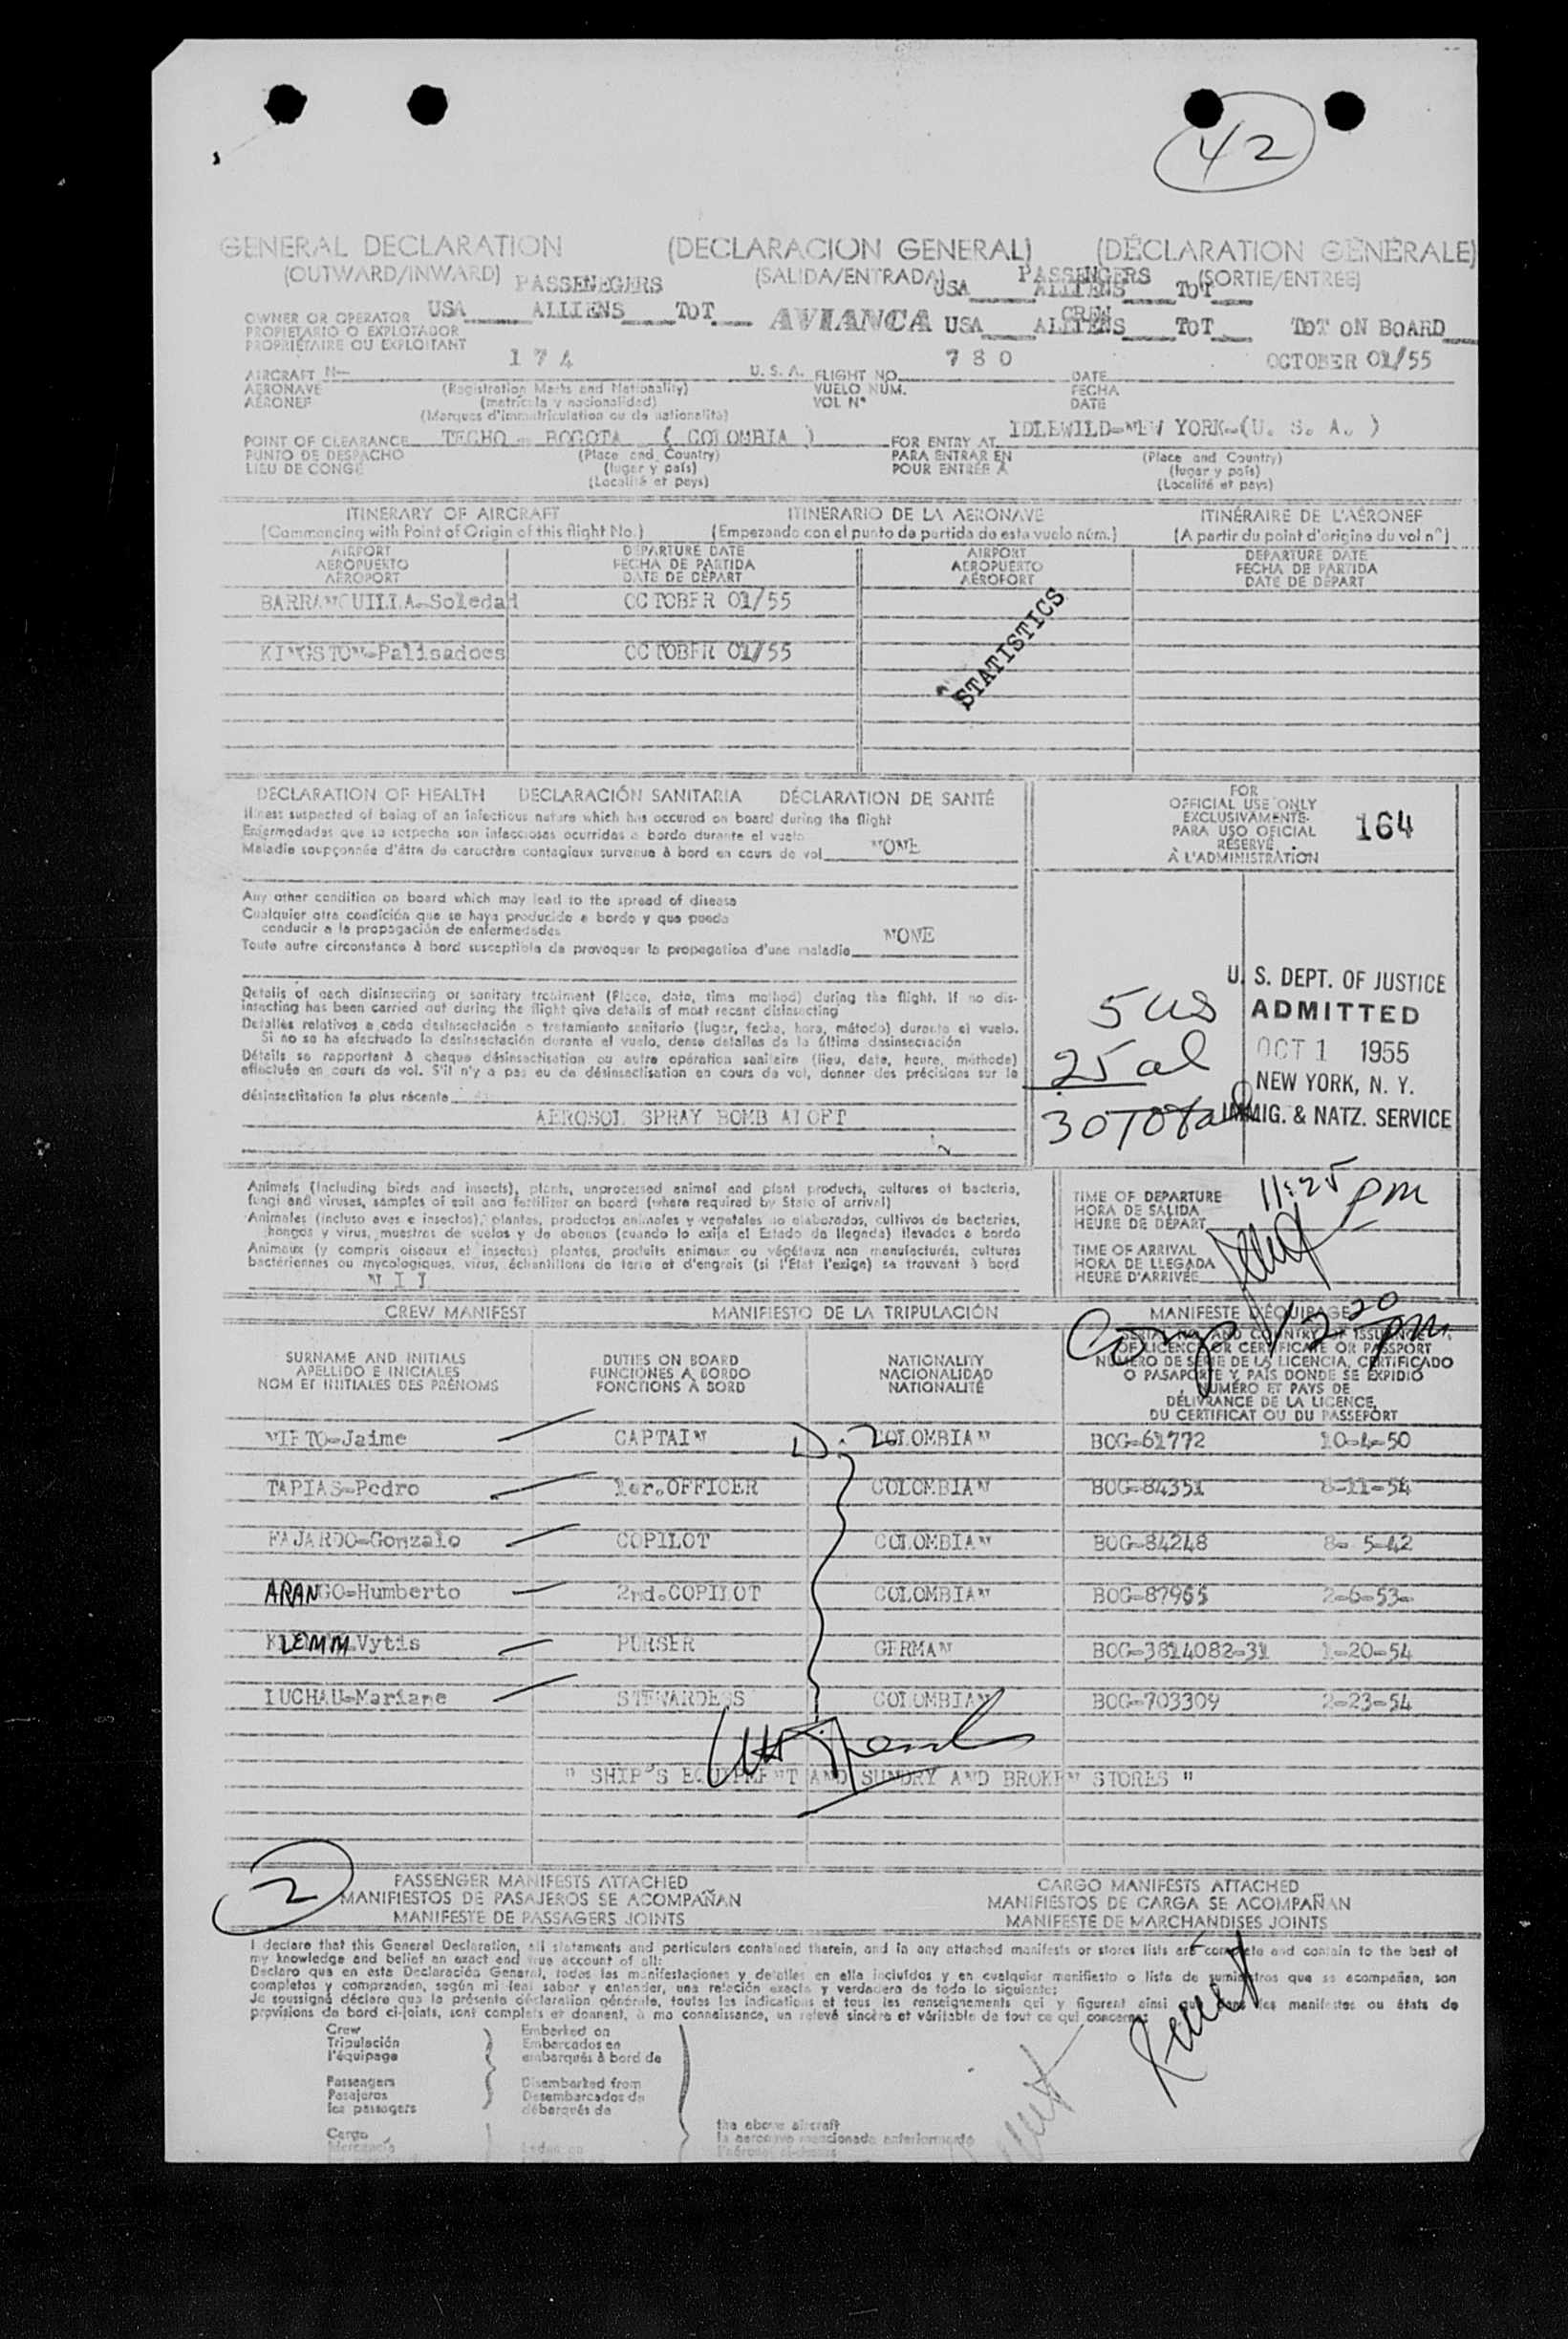 42
GENERAL DECLARATION (DECLARACION GENERAL) (DÉCLARATION GÉNÉRALE)
(OUTWARD/INWARD) PASSENEGERS (SALIDA/ENTRADA) PASSENGERS (SORTIE/ENTRÉE)
USA ALLIENS TOT
USA ALLIENS TOT CREW
OWNER OR OPERATOR AVIANCA USA ALLIENS TOT TOT ON BOARD
PROPIETARIO O EXPLOTADOR
PROPRIÉTAIRE OU EXPLOITANT
AIRCRAFT N- 174 U. S. A. FLIGHT NO. 780 DATE OCTOBER 01/55
AERONAVE (Registration Marks and Nationality) VUELO NÚM. FECHA
AÉRONEF (matrícula y nacionalidad) VOL N° DATE
(Marques d'immatriculation ou de nationalité)
POINT OF CLEARANCE TECHO - BOGOTA ( COLOMBIA ) FOR ENTRY AT IDLEWILD-NEW YORK-(U. S. A. )
PUNTO DE DESPACHO (Place and Country) PARA ENTRAR EN (Place and Country)
LIEU DE CONGÉ (lugar y país) POUR ENTRÉE À (lugar y país)
(Localité et pays) (Localité et pays)
ITINERARY OF AIRCRAFT ITINERARIO DE LA AERONAVE ITINÉRAIRE DE L'AÉRONEF
(Commencing with Point of Origin of this flight No.) (Empezando con el punto de partida de este vuelo núm.) (A partir du point d'origine du vol n°)
AIRPORT DEPARTURE DATE AIRPORT DEPARTURE DATE
AEROPUERTO FECHA DE PARTIDA AEROPUERTO FECHA DE PARTIDA
AÉROPORT DATE DE DÉPART AÉROPORT DATE DE DÉPART
BARRANQUILLA-Soledad OCTOBER 01/55
KINGSTON-Palisadoes OCTOBER 01/55
STATISTICS
DECLARATION OF HEALTH DECLARACIÓN SANITARIA DÉCLARATION DE SANTÉ
Illness suspected of being of an infectious nature which has occured on board during the flight
Enfermedades que se sospecha son infecciosas ocurridas a bordo durante el vuelo
Maladie soupçonnée d'être de caractère contagieux survenue à bord en cours de vol NONE
Any other condition on board which may lead to the spread of disease
Cualquier otra condición que se haya producido a bordo y que pueda
conducir a la propagación de enfermedades
Toute autre circonstance à bord susceptible de provoquer la propagation d'une maladie NONE
Details of each disinsecting or sanitary treatment (Place, date, time method) during the flight. If no dis-
insecting has been carried out during the flight give details of most recent disinsecting
Detalles relativos a cada desinsectación o tratamiento sanitario (lugar, fecha, hora, método) durante el vuelo.
Si no se ha efectuado la desinsectación durante el vuelo, dense detalles de la última desinsectación
Détails se rapportant à chaque désinsectisation ou autre opération sanitaire (lieu, date, heure, méthode)
effectuée en cours de vol. S'il n'y a pas eu de désinsectisation en cours de vol, donner des précisions sur la
désinsectisation la plus récente
AEROSOL SPRAY BOMB ALOFT
FOR
OFFICIAL USE ONLY
EXCLUSIVAMENTE
PARA USO OFICIAL
RÉSERVÉ
À L'ADMINISTRATION
164
5 US
25 al
30 Total
U. S. DEPT. OF JUSTICE
ADMITTED
OCT 1 1955
NEW YORK, N. Y.
IMMIG. & NATZ. SERVICE
Animals (including birds and insects), plants, unprocessed animal and plant products, cultures of bacteria,
fungi and viruses, samples of soil and fertilizer on board (where required by State of arrival)
Animales (incluso aves e insectos), plantas, productos animales y vegetales no elaborados, cultivos de bacterias,
hongos y virus, muestras de suelos y de abonos (cuando lo exija el Estado de llegada) llevados a bordo
Animaux (y compris oiseaux et insectes) plantes, produits animaux ou végétaux non manufacturés, cultures
bactériennes ou mycologiques, virus, échantillons de terre et d'engrais (si l'État l'exige) se trouvant à bord
NIL
TIME OF DEPARTURE 11:25 pm
HORA DE SALIDA
HEURE DE DÉPART
TIME OF ARRIVAL
HORA DE LLEGADA
HEURE D'ARRIVÉE
Comp 12 20 pm
CREW MANIFEST MANIFIESTO DE LA TRIPULACIÓN MANIFESTE D'ÉQUIPAGE
SURNAME AND INITIALS DUTIES ON BOARD NATIONALITY SERIAL NO. AND COUNTRY OF ISSUANCE
APELLIDO E INICIALES FUNCIONES A BORDO NACIONALIDAD OF LICENCE OR CERTIFICATE OR PASSPORT
NOM ET INITIALES DES PRÉNOMS FONCTIONS À BORD NATIONALITÉ NÚMERO DE SERIE DE LA LICENCIA, CERTIFICADO
O PASAPORTE Y PAÍS DONDE SE EXPIDIÓ
NUMÉRO ET PAYS DE
DÉLIVRANCE DE LA LICENCE,
DU CERTIFICAT OU DU PASSEPORT
NIETO-Jaime CAPTAIN D-2 COLOMBIAN BOG-61772 10-4-50
TAPIAS-Pedro 1er.OFFICER COLOMBIAN BOG-84351 8-11-54
FAJARDO-Gonzalo COPILOT COLOMBIAN BOG-84248 8- 5-42
ARANGO-Humberto 2nd.COPILOT COLOMBIAN BOG-87965 2-6-53-
KLEMM Vytis PURSER GERMAN BOG-3814082-31 1-20-54
LUCHAU-Mariane STEWARDESS COLOMBIAN BOG-703309 2-23-54
" SHIP'S EQUIPMENT AND SUNDRY AND BROKEN STORES "
2
PASSENGER MANIFESTS ATTACHED CARGO MANIFESTS ATTACHED
MANIFIESTOS DE PASAJEROS SE ACOMPAÑAN MANIFIESTOS DE CARGA SE ACOMPAÑAN
MANIFESTE DE PASSAGERS JOINTS MANIFESTE DE MARCHANDISES JOINTS
I declare that this General Declaration, all statements and particulars contained therein, and in any attached manifests or stores lists are complete and contain to the best of
my knowledge and belief an exact and true account of all:
Declaro que en esta Declaración General, todas las manifestaciones y detalles en ella incluídos y en cualquier manifiesto o lista de suministros que se acompañan, son
completos y comprenden, según mi leal saber y entender, una relación exacta y verdadera de todo lo siguiente:
Je soussigné déclare que la présente déclaration générale, toutes les indications et tous les renseignements qui y figurent ainsi que dans les manifestes ou états de
provisions de bord ci-joints, sont complets et donnent, à ma connaissance, un relevé sincère et véritable de tout ce qui concerne:
Crew Embarked on
Tripulación Embarcados en
l'équipage embarqués à bord de
Passengers Disembarked from
Pasajeros Desembarcados de
les passagers débarqués de
the above aircraft
Cargo la aeronave mencionada anteriormente
Mercancía Laden on